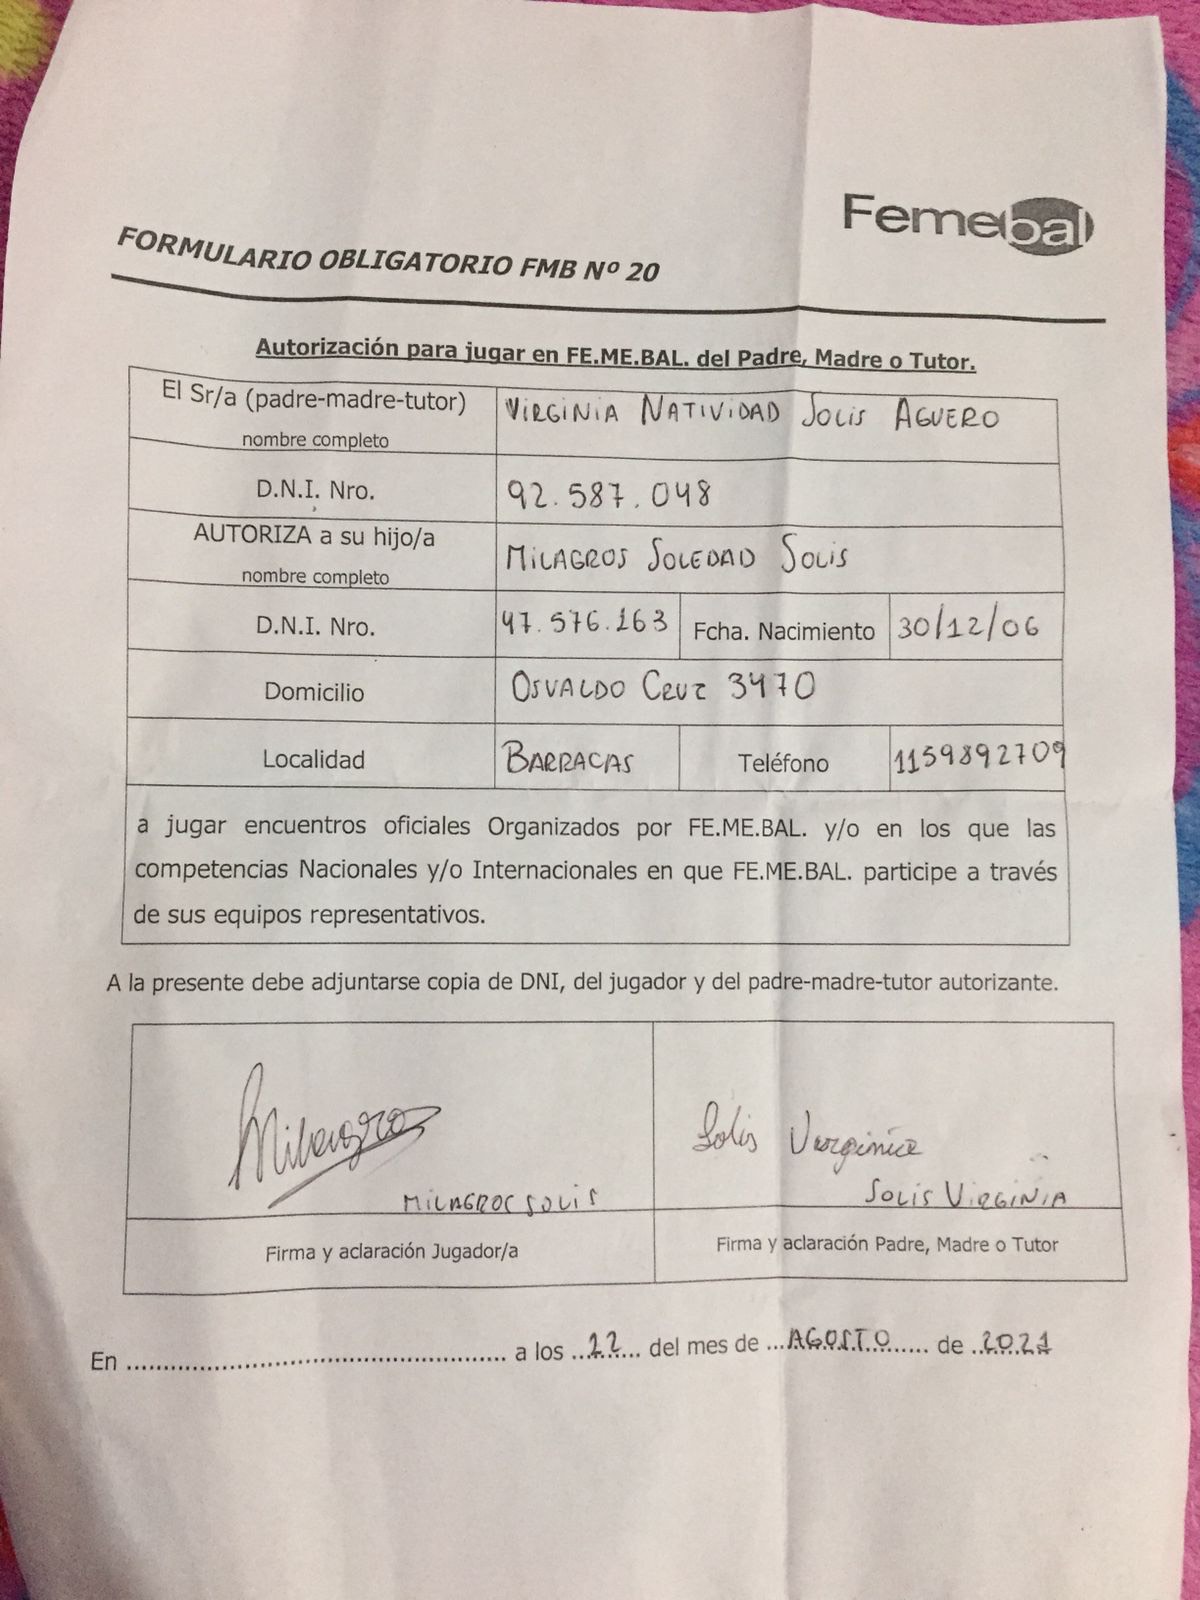 Femebal
FORMULARIO OBLIGATORIO FMB Nº 20
Autorización para jugar en FE.ME.BAL. del Padre, Madre o Tutor.
El Sr/a (padre-madre-tutor) VIRGINIA NATIVIDAD SOLIS AGUERO
nombre completo
D.N.I. Nro. 92.587.048
AUTORIZA a su hijo/a MILAGROS SOLEDAD SOLIS
nombre completo
D.N.I. Nro. 47.576.163 Fcha. Nacimiento 30/12/06
Domicilio OSVALDO CRUZ 3470
Localidad BARRACAS Teléfono 1159892709
a jugar encuentros oficiales Organizados por FE.ME.BAL. y/o en los que las
competencias Nacionales y/o Internacionales en que FE.ME.BAL. participe a través
de sus equipos representativos.
A la presente debe adjuntarse copia de DNI, del jugador y del padre-madre-tutor autorizante.
Milagros Solis Virginia
MILAGROS SOLIS SOLIS VIRGINIA
Firma y aclaración Jugador/a Firma y aclaración Padre, Madre o Tutor
En .................................................. a los ..12.... del mes de ...AGOSTO...... de ..2021